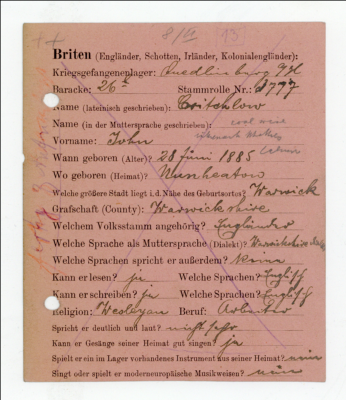 8/4 13
Briten (Engländer, Schotten, Irländer, Kolonialengländer):
Kriegsgefangenenlager: Quedlinburg a/H
Baracke: 26 Stammrolle Nr.: 3777
Name (lateinisch geschrieben): Critchlow
Name (in der Muttersprache geschrieben):
Vorname: John
Wann geboren (Alter)? 28 Juni 1885
Wo geboren (Heimat)? Nuneaton
Welche größere Stadt liegt i. d. Nähe des Geburtsortes? Warwick
Grafschaft (County): Warwickshire
Welchem Volksstamm angehörig? Engländer
Welche Sprache als Muttersprache (Dialekt)? Warwickshire
Welche Sprachen spricht er außerdem? keine
Kann er lesen? ja Welche Sprachen? Englisch
Kann er schreiben? ja Welche Sprachen? Englisch
Religion: Wesleyan Beruf: Arbeiter
Spricht er deutlich und laut? nicht sehr
Kann er Gesänge seiner Heimat gut singen? ja
Spielt er ein im Lager vorhandenes Instrument aus seiner Heimat? nein
Singt oder spielt er moderneuropäische Musikweisen? nein